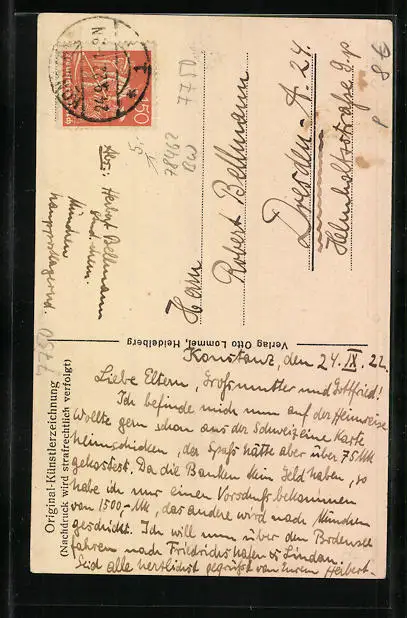 Original-Künstlerzeichnung
(Nachdruck wird strafrechtlich verfolgt)
Verlag Otto Lommel, Heidelberg
150
Abs.: Herbert Bellmann
cand. chem.
München
hauptpostlagernd.
Herrn
Robert Bellmann
Dresden-A. 24.
Helmholtzstraße
Konstanz, den 24. IX. 22.
Liebe Eltern, Großmutter und Gottfried!
Ich befinde mich nun auf der Heimreise
Wollte gern schon aus der Schweiz eine Karte
heimschicken, der Spaß hätte aber über 75 Mk
gekostest. Da die Banken kein Geld haben, so
habe ich nur einen Vorschuß bekommen
von 1500,- Mk, das andere wird nach München
geschickt. Ich will nun über den Bodensee
fahren nach Friedrichshafen & Lindau.
Seid alle herzlichst gegrüßt von Eurem Herbert.